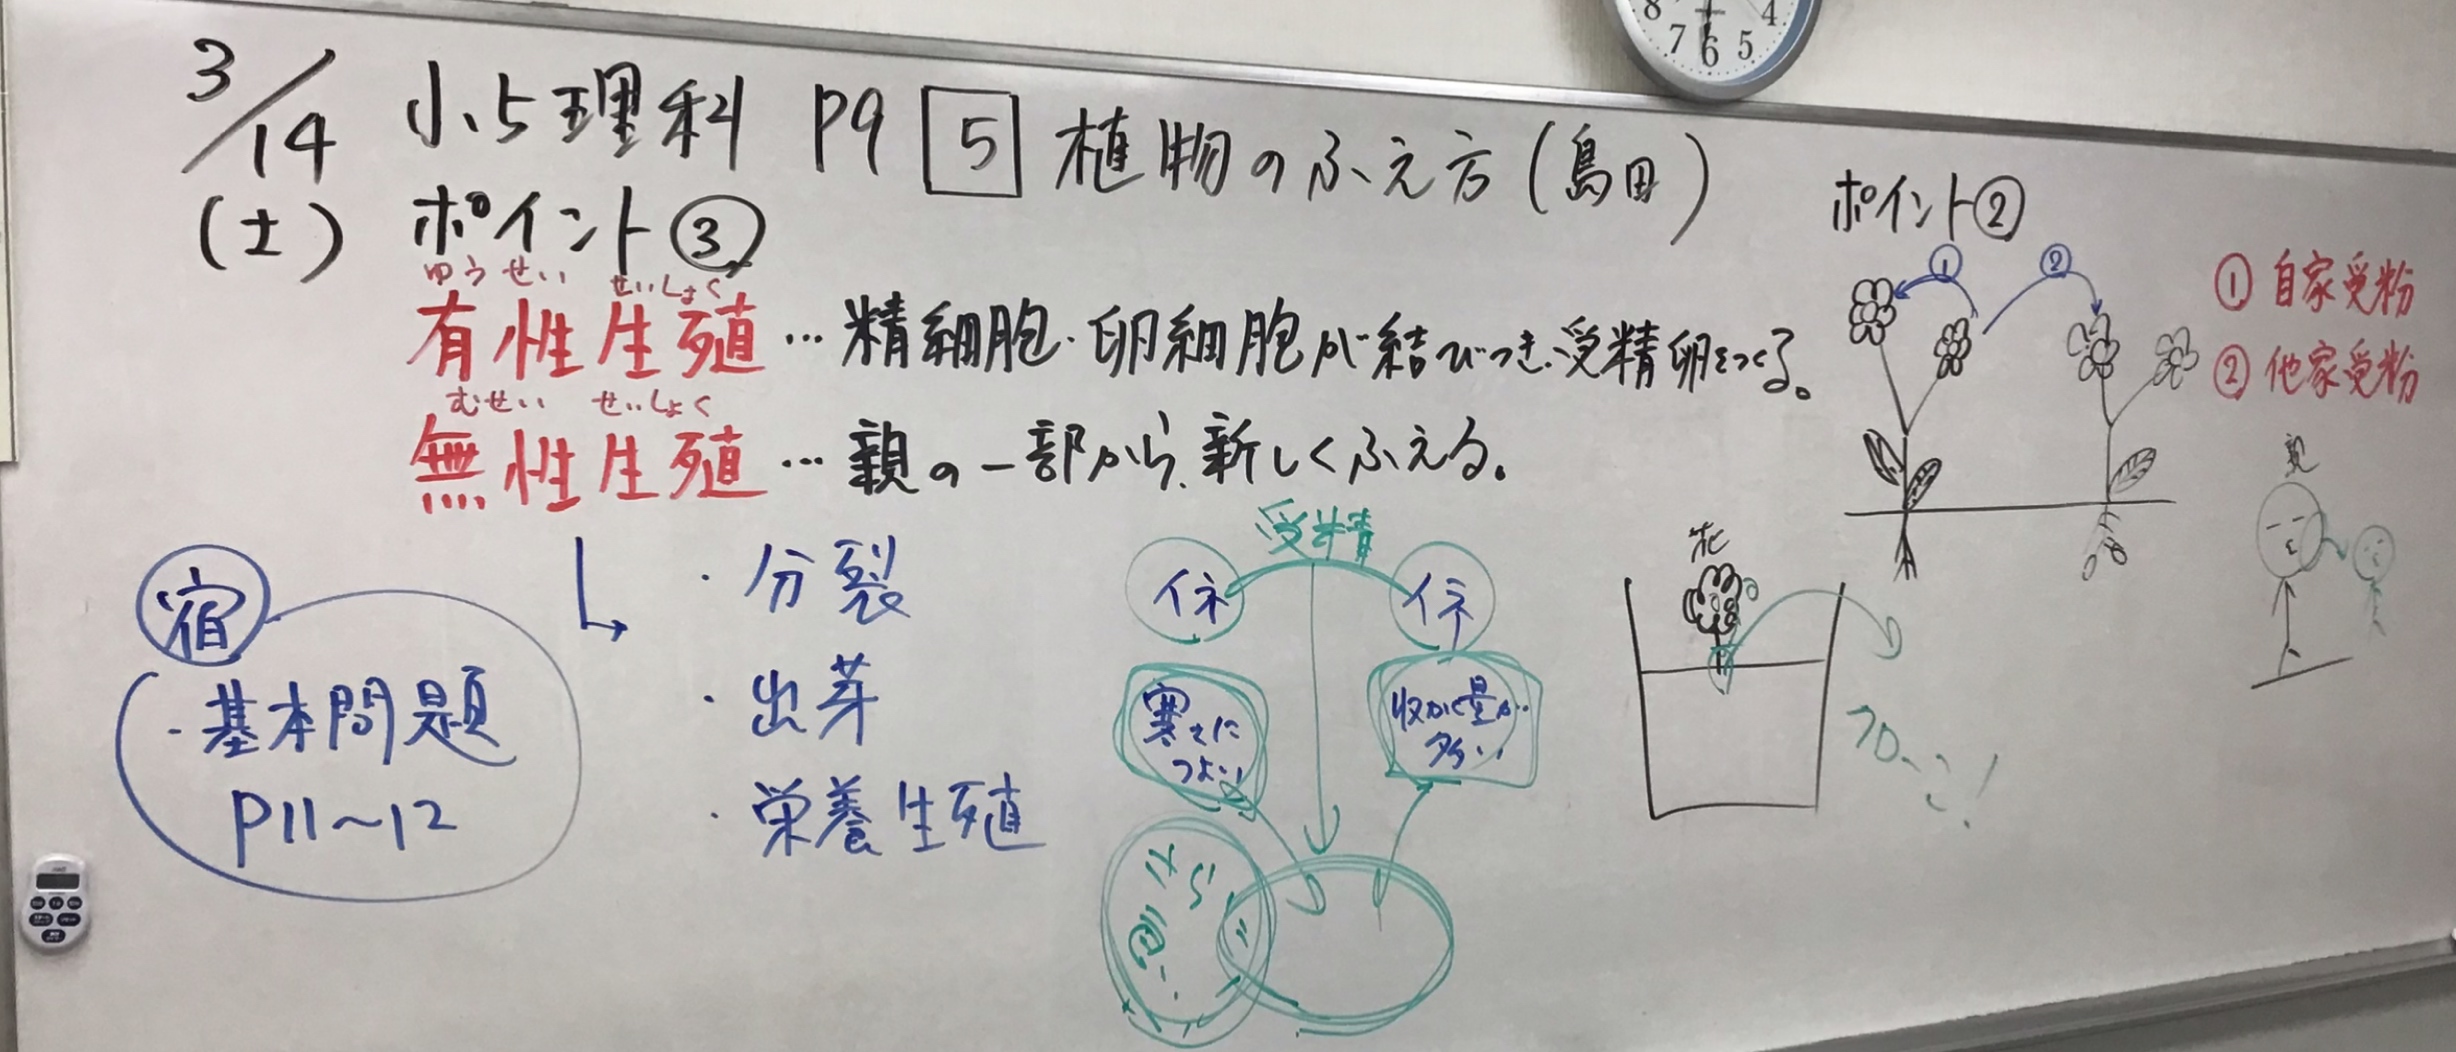 3/14 小5理科 P9 5 植物のふえ方(島田)
(土) ポイント③
ゆうせい せいしょく
有性生殖…精細胞・卵細胞が結びつき、受精卵をつくる。
むせい せいしょく
無性生殖…親の一部から、新しくふえる。
・分裂
・出芽
・栄養生殖
宿
・基本問題
P11~12
受精
イネ イネ
寒さに
つよい
収かく量が
多い
ポイント②
① ②
① 自家受粉
② 他家受粉
親
花
8 7 6 5 4